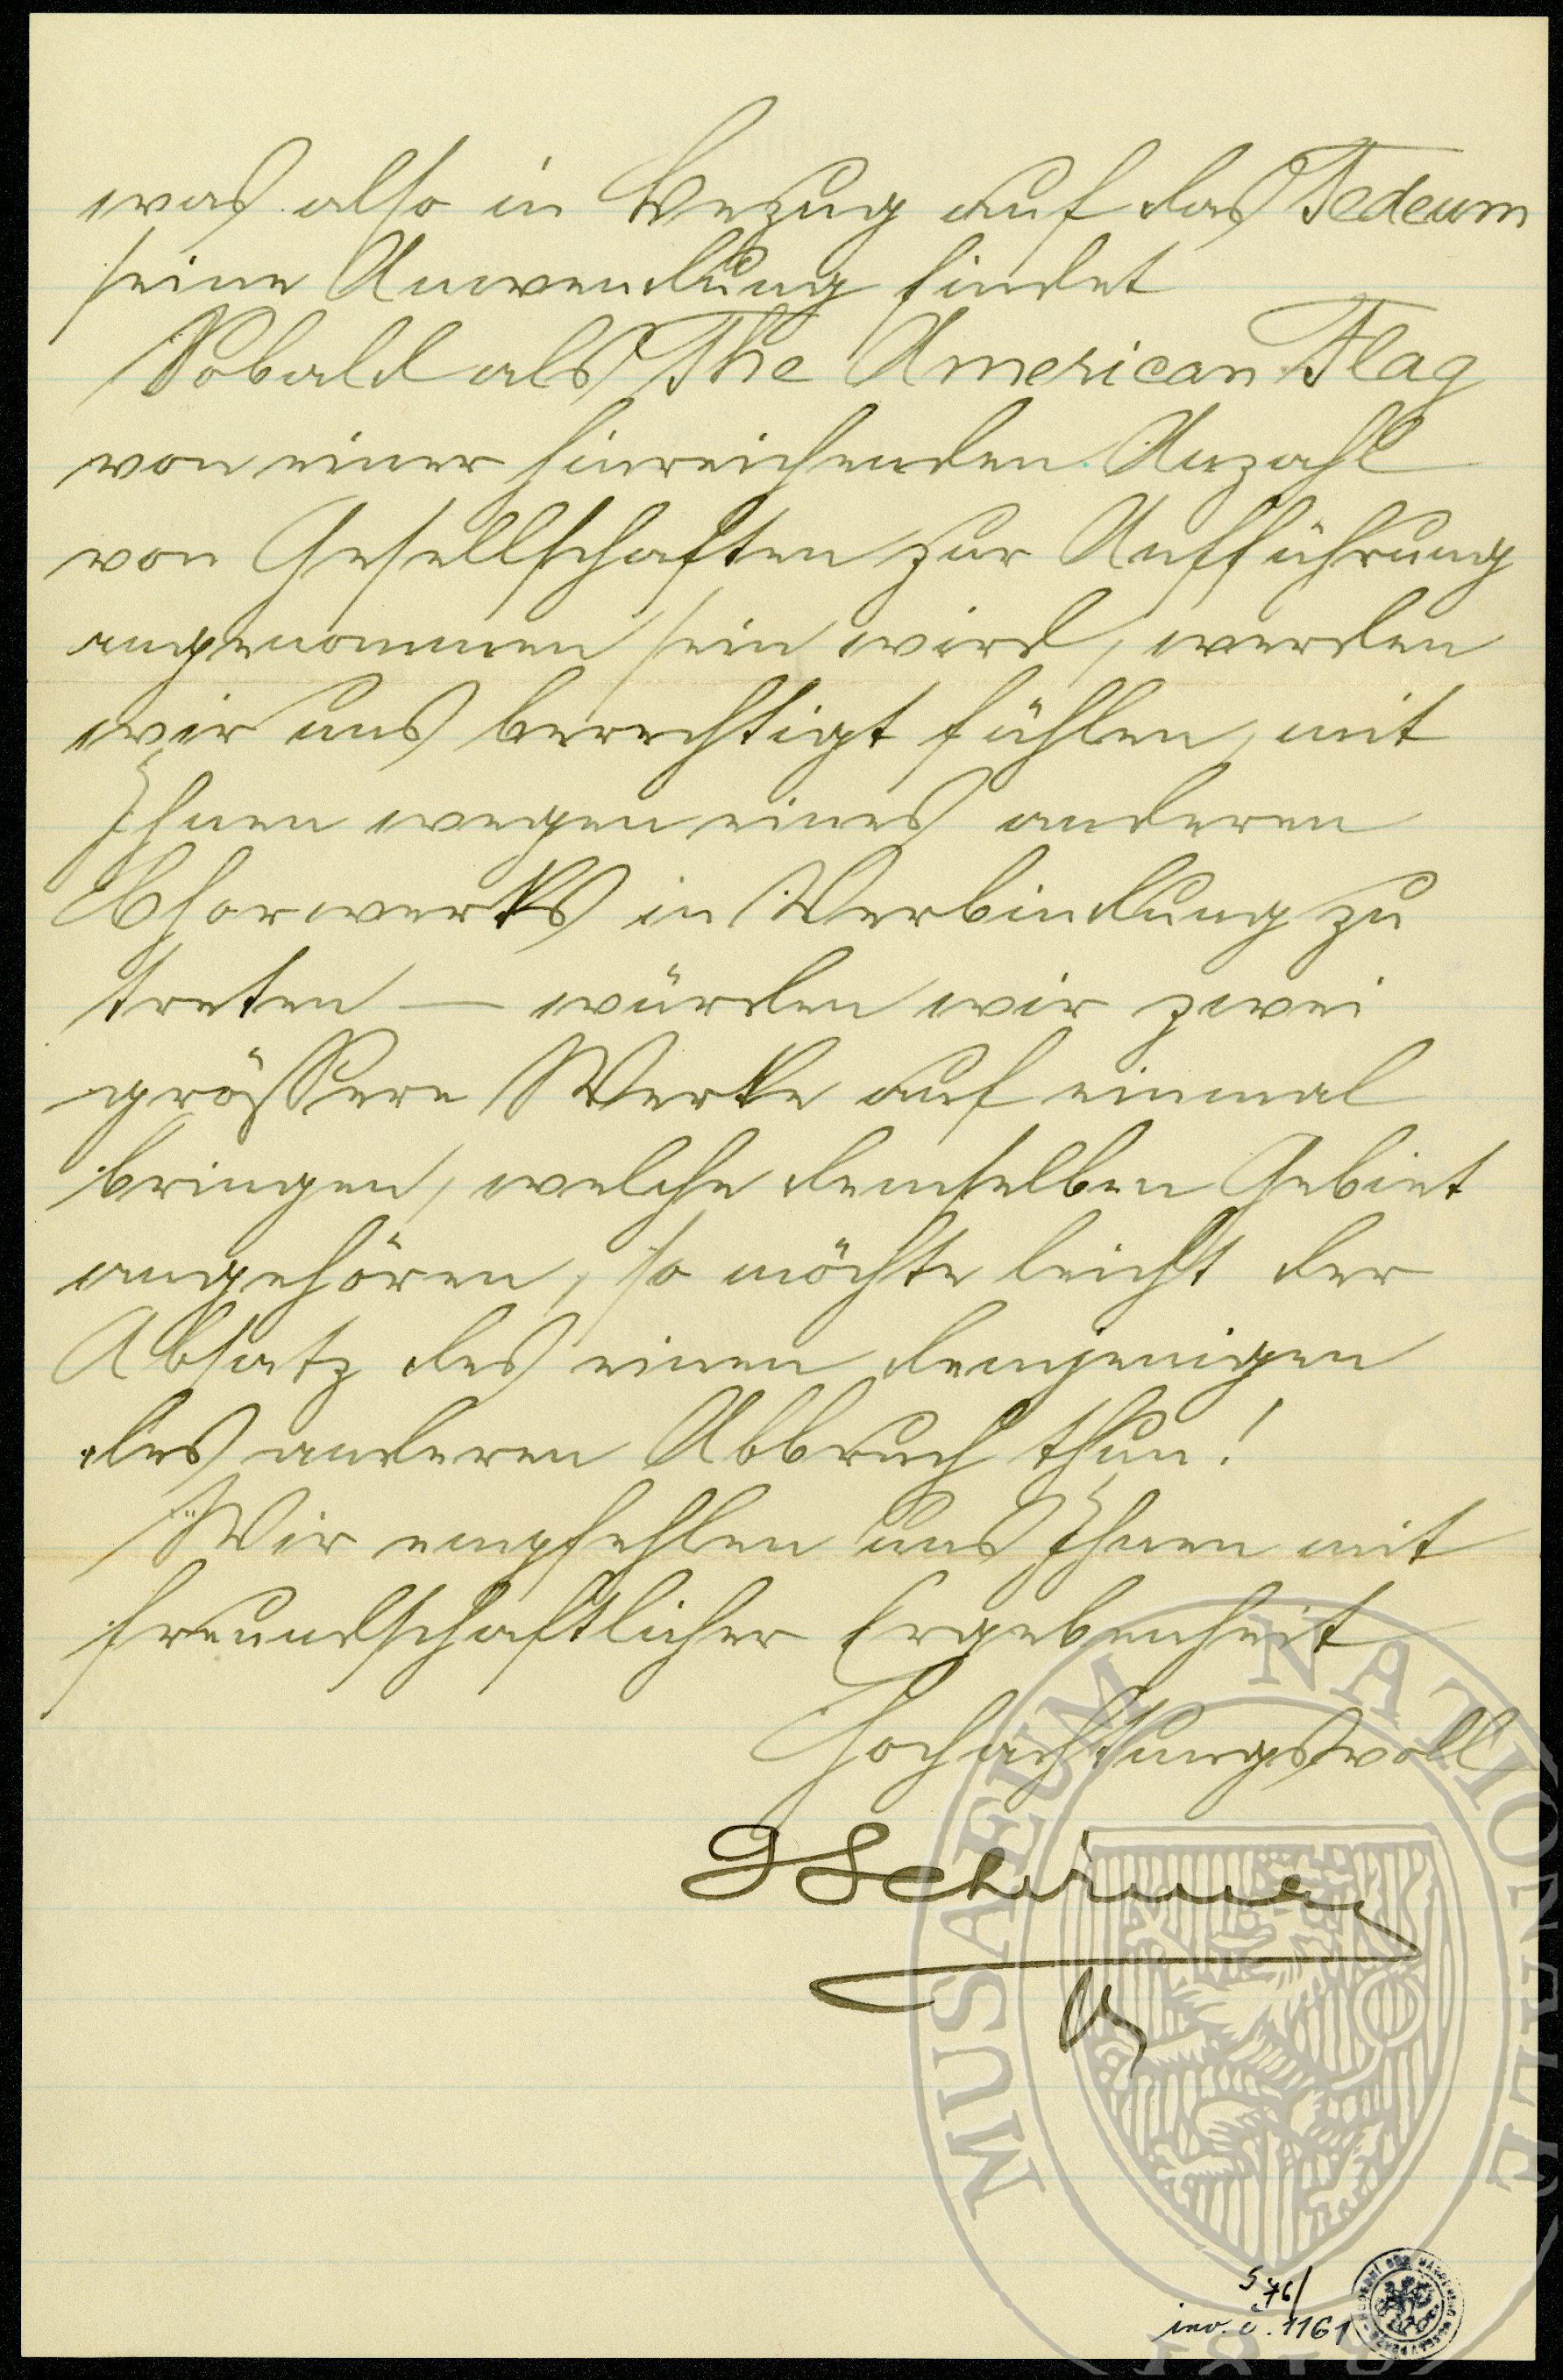 was also in Bezug auf das Tedeum
seine Anwendung findet
Sobald als The American Flag
von einer hinreichenden Anzahl
von Gesellschaften zur Aufführung
angenommen sein wird, werden
wir uns berechtigt fühlen, mit
Ihnen wegen eines anderen
Chorwerks in Verbindung zu
treten — würden wir zwei
grössere Werke auf einmal
bringen, welche demselben Gebiet
angehören, so möchte leicht der
Absatz des einen demjenigen
des anderen Abbruch thun!
Wir empfehlen uns Ihnen mit
freundschaftlicher Ergebenheit
Hochachtungsvoll
G Schirmer
MUSAEUM NATIONALE
1818
S 76/
inv. č. 1161